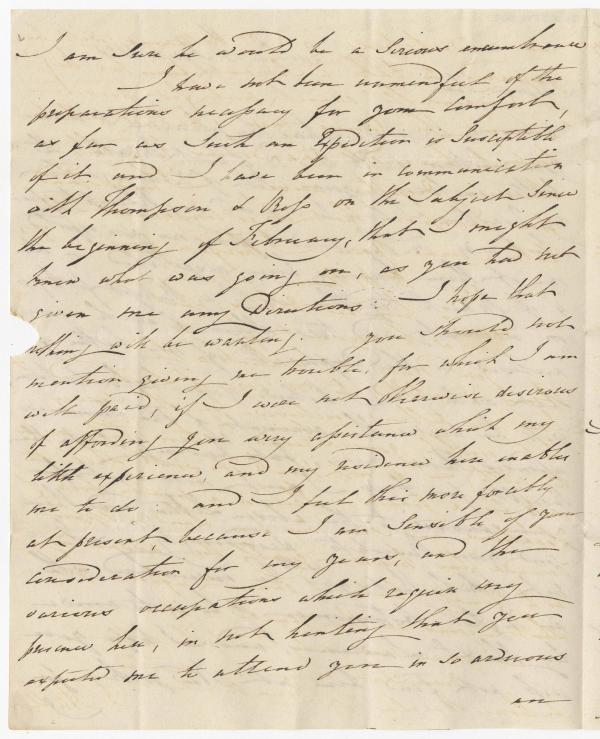 I am sure he would be a serious encumbrance
I have not been unmindful of the
preparations necessary for your comfort,
as far as such an Expedition is susceptible
of it and I have been in communication
with Thompson & Ross on the Subject since
the beginning of February, that I might
know what was going on, as you had not
given me any Directions. I hope that
nothing will be wanting. you should not
mention giving me trouble, for which I am
well paid, if I were not otherwise desirous
of affording you every assistance which my
little experience, and my residence here enables
me to do: and I feel this more forcibly
at present, because I am sensible of your
consideration for my years, and the
various occupations which require my
presence here, in not hinting that you
expected me to attend you in so arduous
an